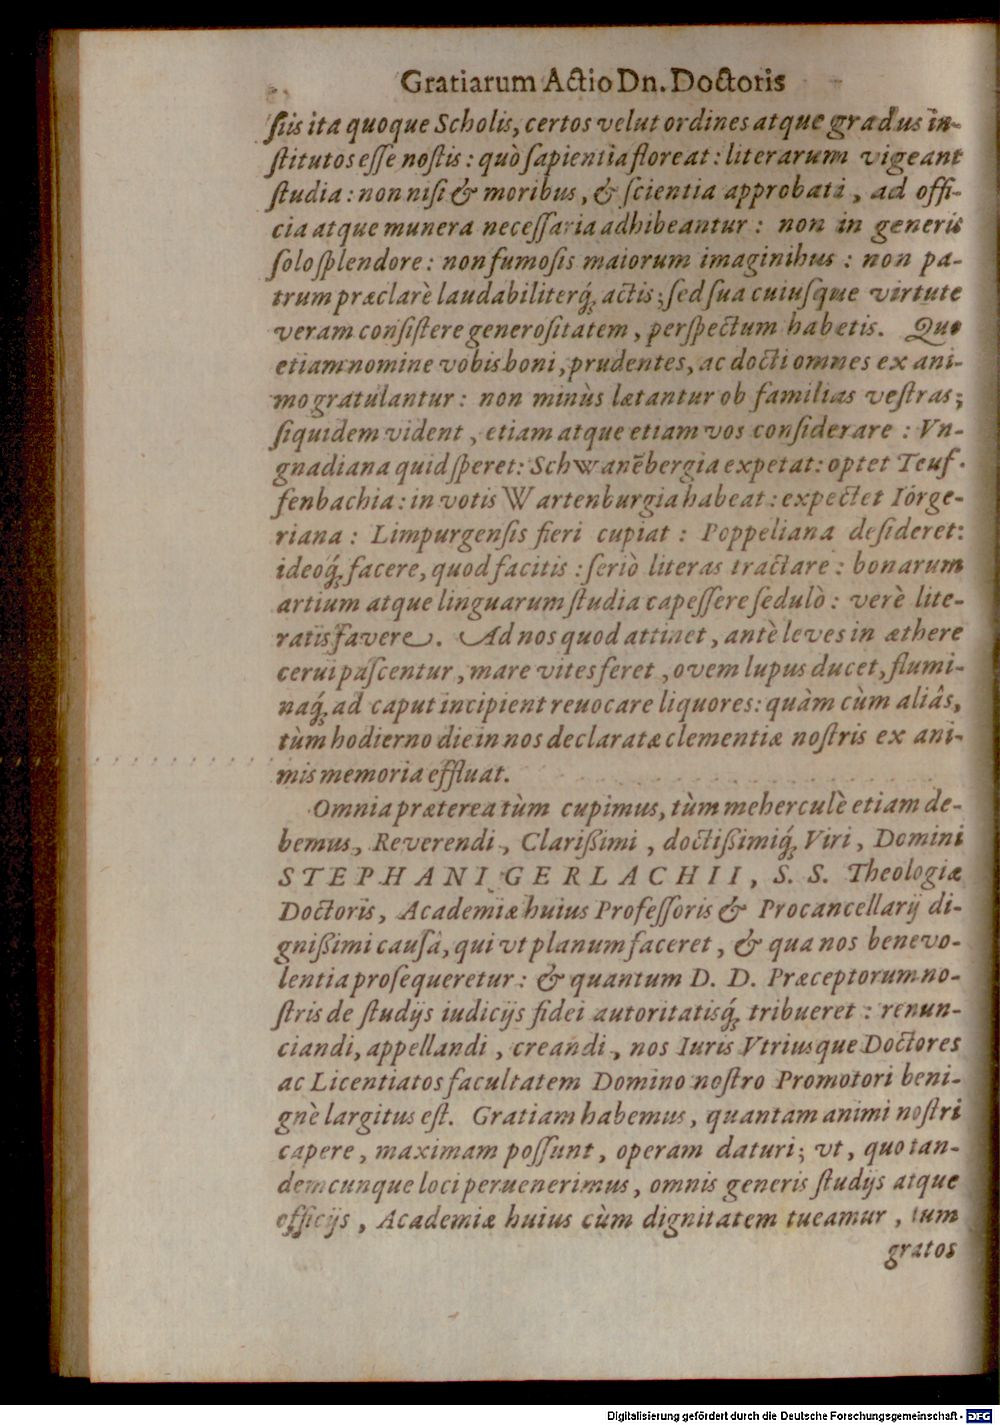 Gratiarum Actio Dn. Doctoris
ſiis ita quoque Scholis, certos velut ordines atque gradus in-
ſtitutos eſſe noſtis: quò ſapientia floreat: literarum vigeant
ſtudia: non niſi & moribus, & ſcientia approbati, ad offi-
cia atque munera neceſſaria adhibeantur: non in generis
ſolo ſplendore: non fumoſis maiorum imaginibus: non pa-
trum præclarè laudabiliterq́; actis: ſed ſua cuiuſque virtute
veram conſiſtere generoſitatem, perſpectum habetis. Quo
etiam nomine vobis boni, prudentes, ac docti omnes ex ani-
mo gratulantur: non minùs lætantur ob familias veſtras;
ſiquidem vident, etiam atque etiam vos conſiderare: Vn-
gnadiana quid ſperet: Schwanẽbergia expetat: optet Teuf-
fenbachia: in votis Wartenburgia habeat: expectet Iórge-
riana: Limpurgenſis fieri cupiat: Poppeliana deſideret:
ideoq́; facere, quod facitis: ſeriò literas tractare: bonarum
artium atque linguarum ſtudia capeſſere ſedulò: verè lite-
ratis favere. Ad nos quod attinet, antè leves in æthere
cerui paſcentur, mare vites feret, ovem lupus ducet, flumi-
naq́; ad caput incipient reuocare liquores: quàm cùm aliâs,
tùm hodierno die in nos declaratæ clementiæ noſtris ex ani-
mis memoria effluat.
Omnia præterea tùm cupimus, tùm meherculè etiam de-
bemus, Reverendi, Clarißimi, doctißimiq́; Viri, Domini
STEPHANI GERLACHII, S. S. Theologiæ
Doctoris, Academiæ huius Profeſſoris & Procancellarij di-
gnißimi cauſâ, qui vt planum faceret, & qua nos benevo-
lentia proſequeretur: & quantum D. D. Præceptorum no-
ſtris de ſtudijs iudicijs fidei autoritatisq́; tribueret: renun-
ciandi, appellandi, creandi, nos Iuris Vtriusque Doctores
ac Licentiatos facultatem Domino noſtro Promotori beni-
gnè largitus eſt. Gratiam habemus, quantam animi noſtri
capere, maximam poſſunt, operam daturi; vt, quo tan-
demcunque loci peruenerimus, omnis generis ſtudijs atque
officijs, Academiæ huius cùm dignitatem tueamur, tum
gratos
Digitalisierung gefördert durch die Deutsche Forschungsgemeinschaft - DFG